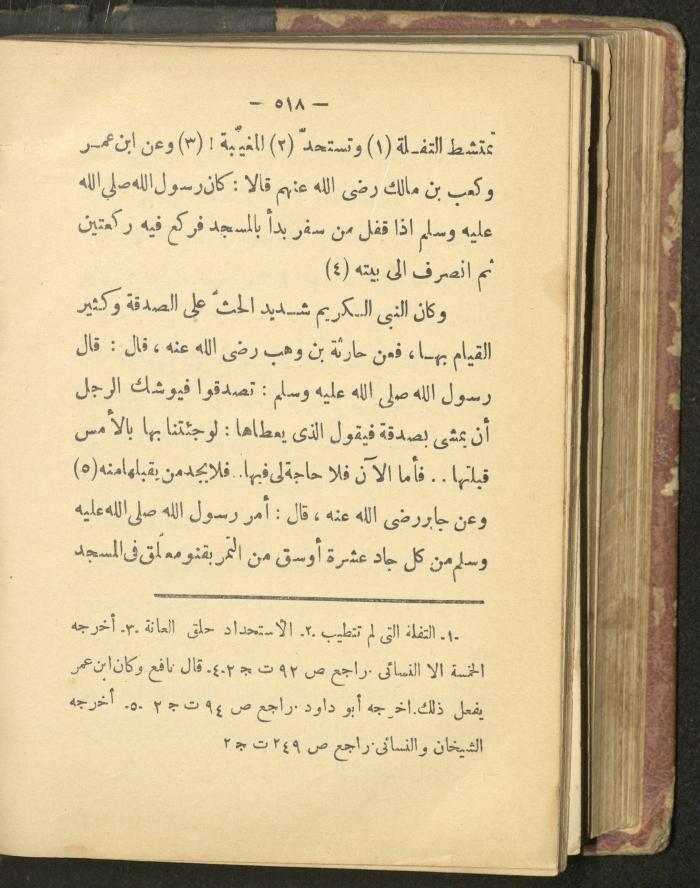 — ٥١٨ —
تمتشط التفـلة (١) وتستحدّ (٢) المغيّبة ! (٣) وعن ابن عمـر
وكعب بن مالك رضى الله عنهم قالا : كان رسول الله صلى الله
عليه وسلم اذا قفل من سفر بدأ بالمسجد فركع فيه ركعتين
ثم انصرف الى بيته (٤)
وكان النبى الـكريم شـديد الحثّ على الصدقة وكثير
القيام بهـا ، فعن حارثة بن وهب رضى الله عنه ، قال : قال
رسول الله صلى الله عليه وسلم : تصدقوا فيوشك الرجل
أن يمشى بصدقة فيقول الذى يعطاها : لوجئتنا بها بالأمس
قبلتها .. فأما الآن فلا حاجة لى فيها .. فلا يجد من يقبلها منه (٥)
وعن جابر رضى الله عنه ، قال : أمر رسول الله صلى الله عليه
وسلم من كل جاد عشرة أوسق من التمر بقنو معلّق فى المسجد
١ـ التفلة التى لم تتطيب ـ٢ـ الاستحداد حلق العانة ـ٣ـ أخرجه
الخمسة الا النسائى . راجع ص ٩٢ ت ج ٢ ـ٤ـ قال نافع وكان ابن عمر
يفعل ذلك . اخرجه أبو داود . راجع ص ٩٤ ت ج ٢ ـ٥ـ أخرجه
الشيخان والنسائى . راجع ص ٢٤٩ ت ج ٢